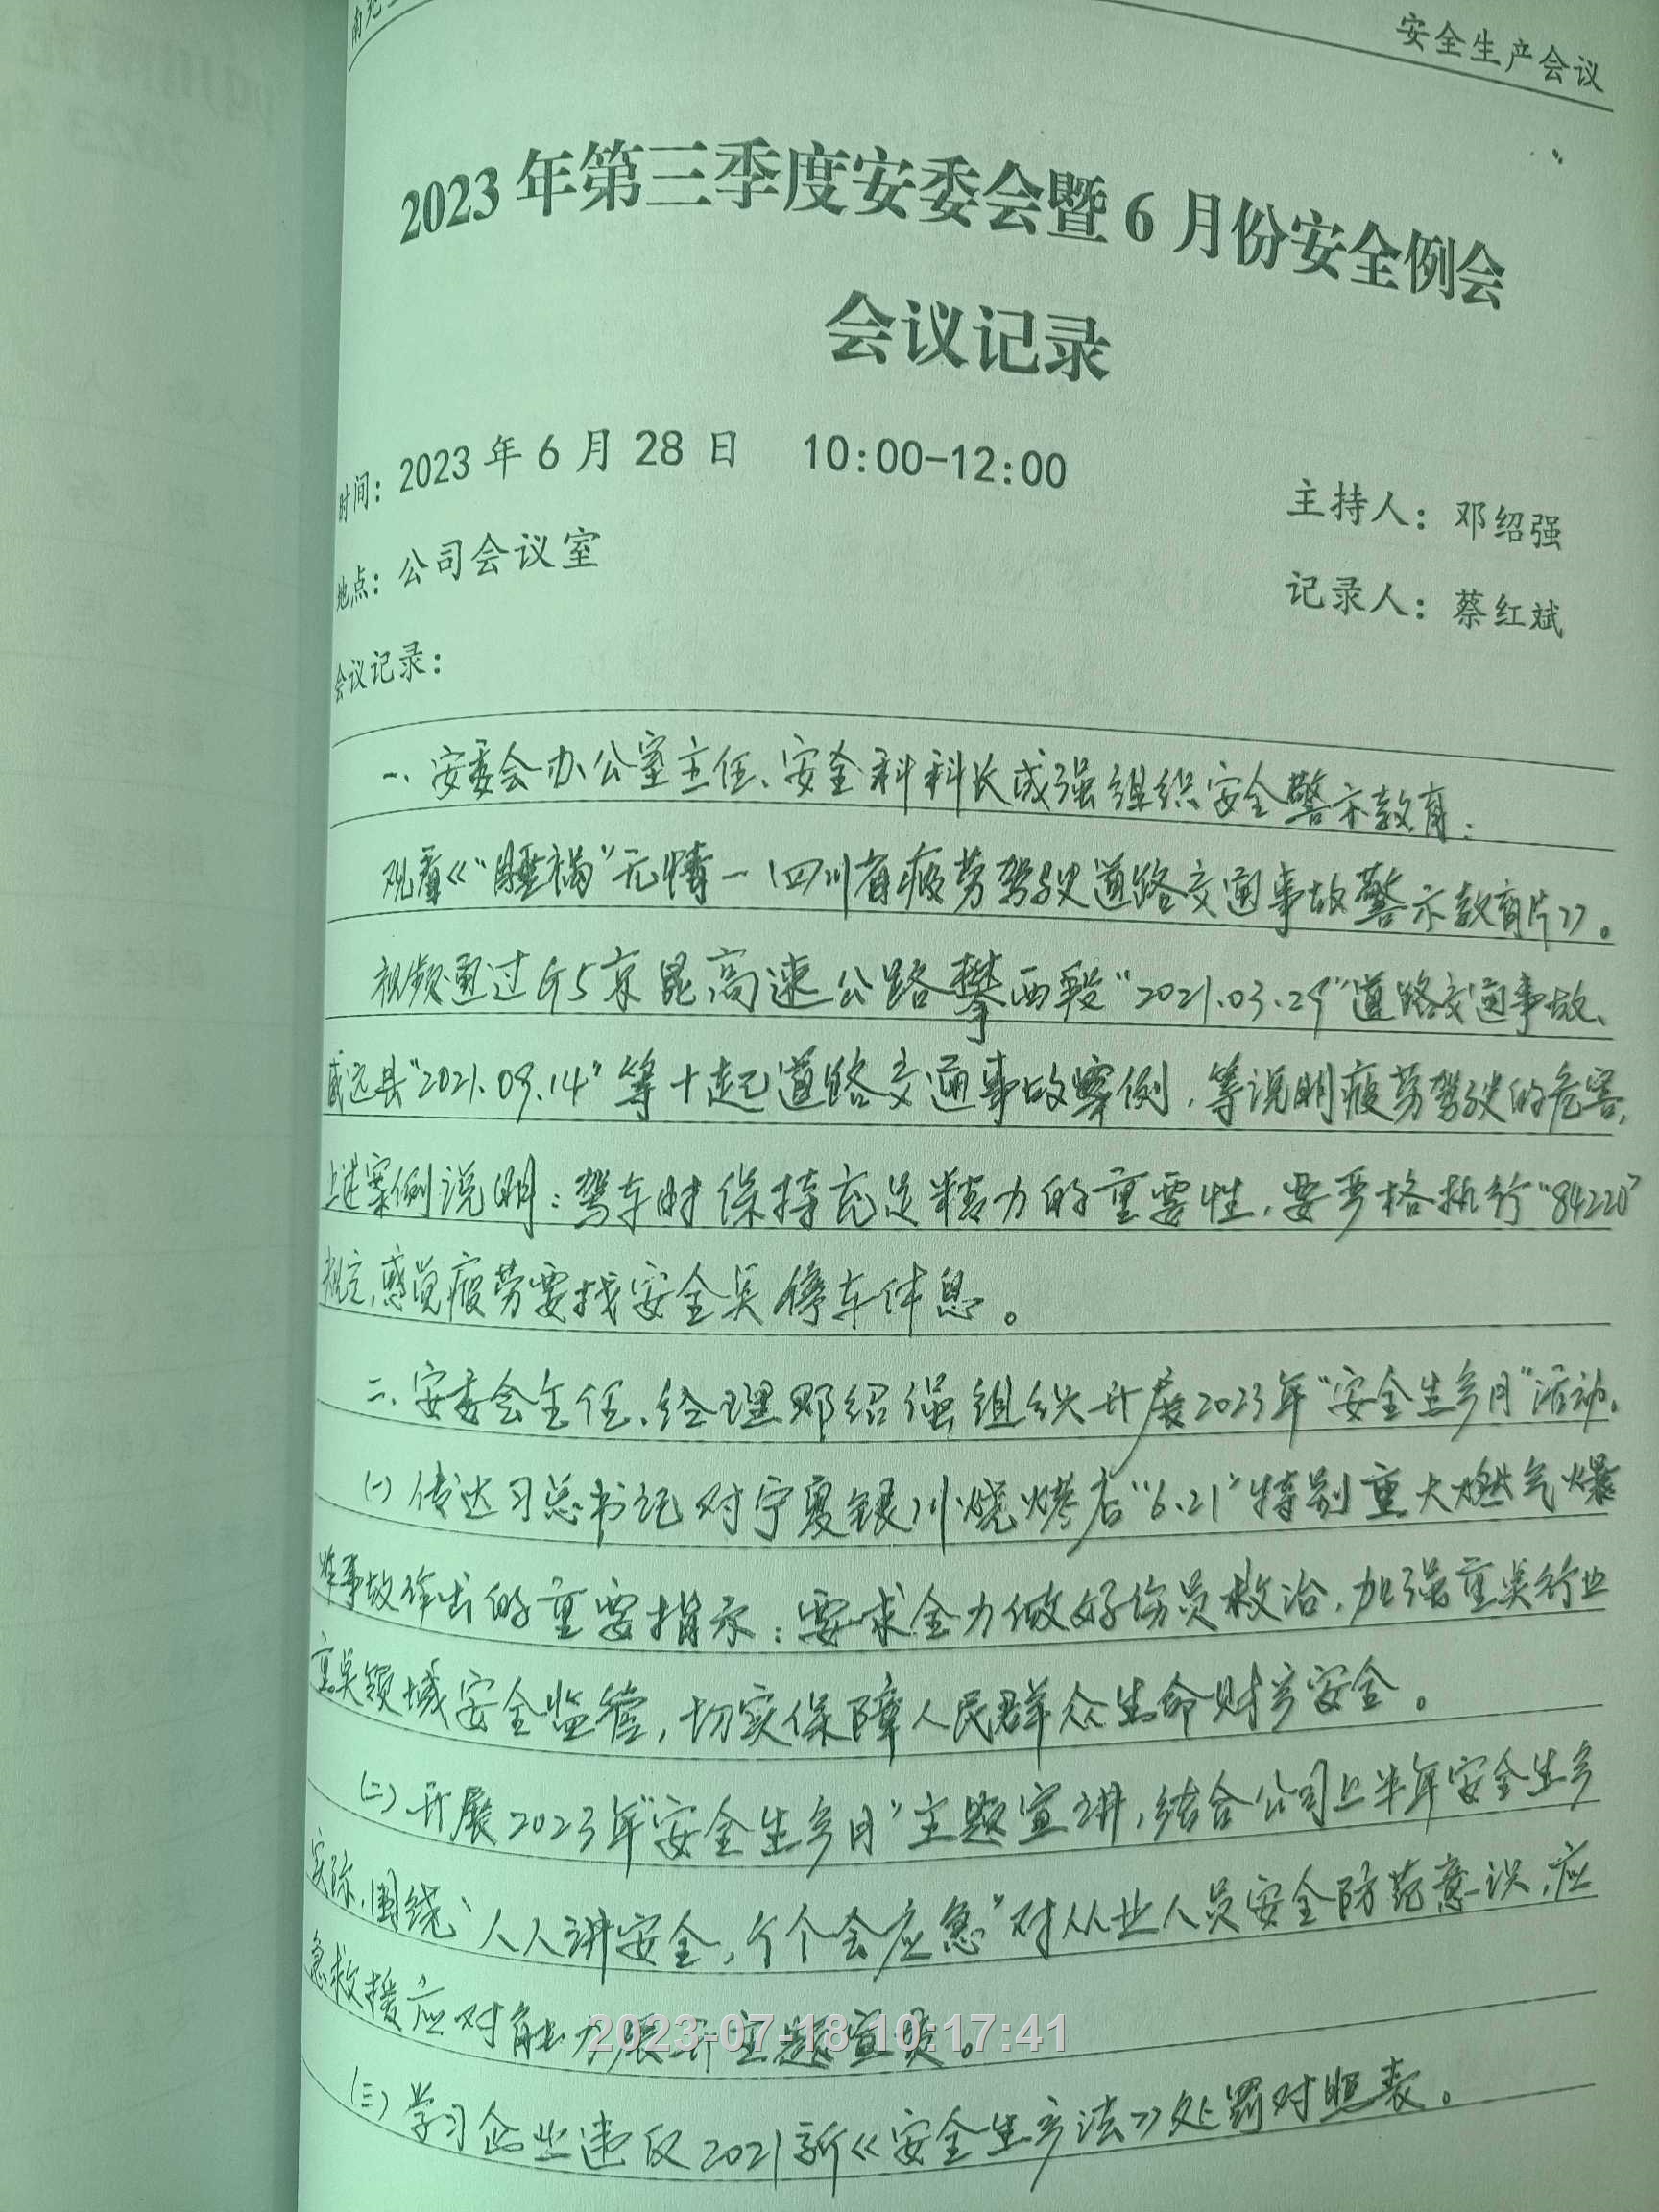 安全生产会议
2023年第三季度安委会暨6月份安全例会
会议记录
时间：2023年6月28日 10:00-12:00
主持人：邓绍强
地点：公司会议室
记录人：蔡红斌
会议记录：
一、安委会办公室主任、安全科科长成强组织安全警示教育：
观看《“睡祸”无情一四川省疲劳驾驶道路交通事故警示教育片》。
视频通过G5京昆高速公路攀西段“2021.03.29”道路交通事故、
威远县“2021.09.14”等十起道路交通事故案例，等说明疲劳驾驶的危害，
上述案例说明：驾车时保持充足精力的重要性，要严格执行“84220”
规定，感觉疲劳要找安全点停车休息。
二、安委会主任、经理邓绍强组织开展2023年“安全生产月”活动。
(一)传达习总书记对宁夏银川烧烤店“6.21”特别重大燃气爆
炸事故作出的重要指示：要求全力做好伤员救治，加强重点行业
重点领域安全监管，切实保障人民群众生命财产安全。
(二)开展2023年“安全生产月”主题宣讲，结合公司上半年安全生产
实际，围绕“人人讲安全，个个会应急”对从业人员安全防范意识，应
急救援应对能力展开主题宣贯。
2023-07-18 10:17:41
(三)学习企业违反2021新《安全生产法》处罚对照表。